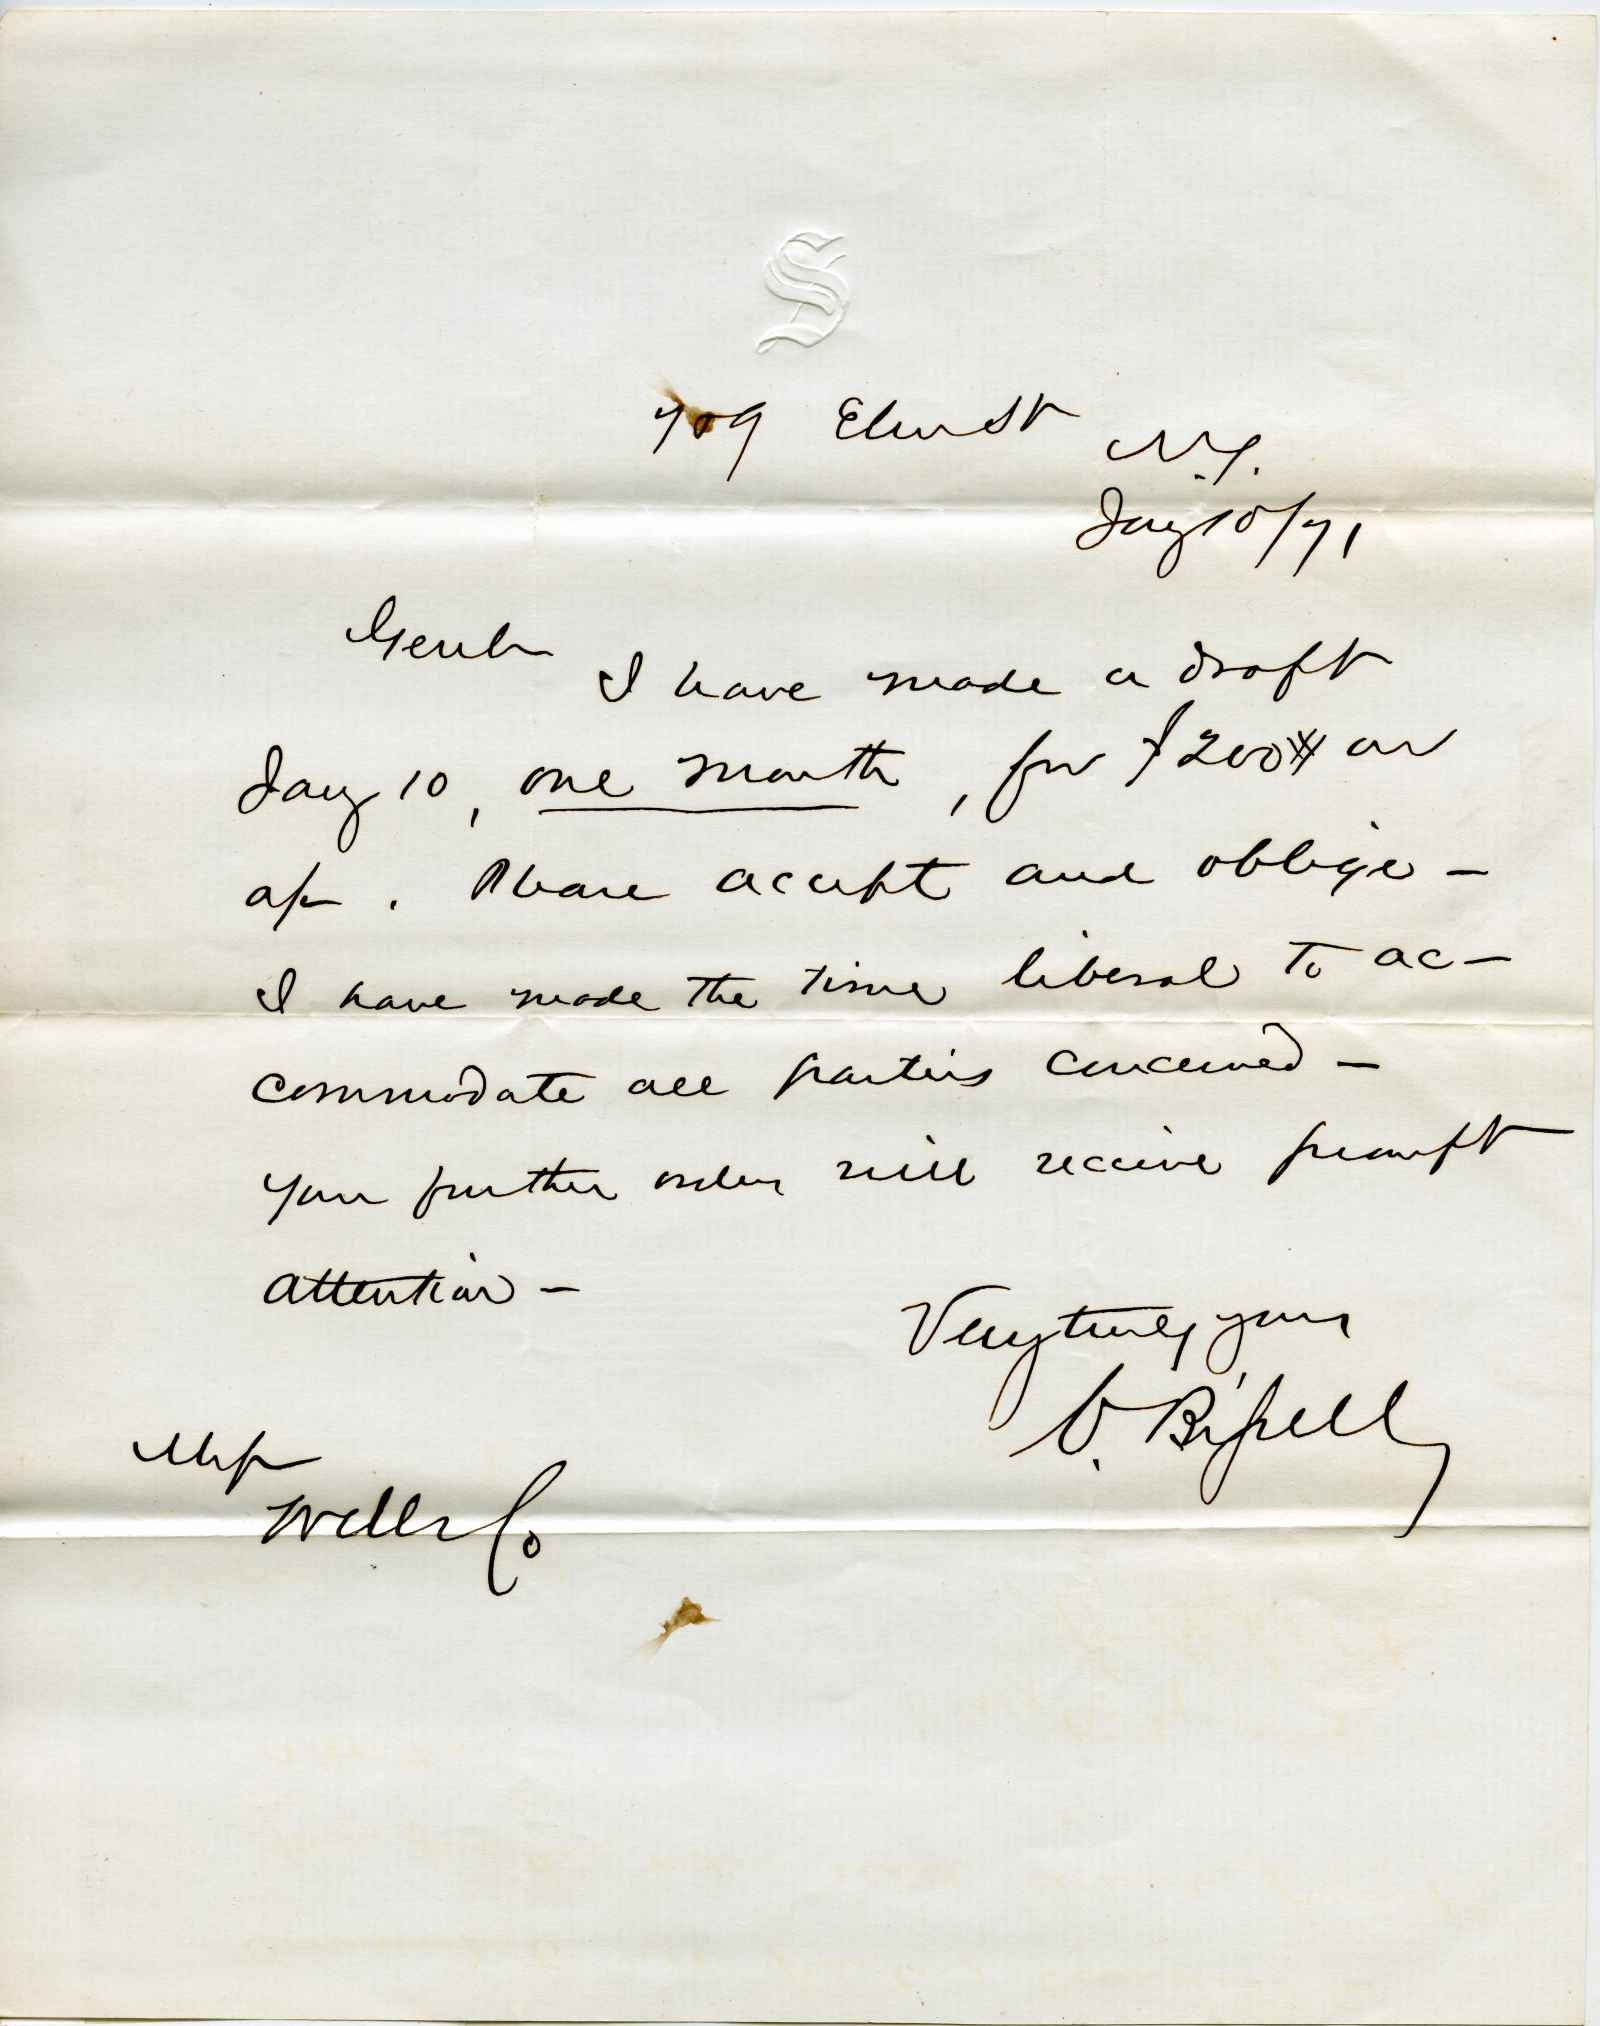 S
709 Elm St
N.Y.
Jany 10/71
Gents
I have made a draft
Jany 10, one month, for $200 on
a/c. Please accept and oblige –
I have made the time liberal to ac–
commodate all parties concerned –
Your further orders will receive prompt
attention –
Very truly yours
Bissell
Mess
Wells Co